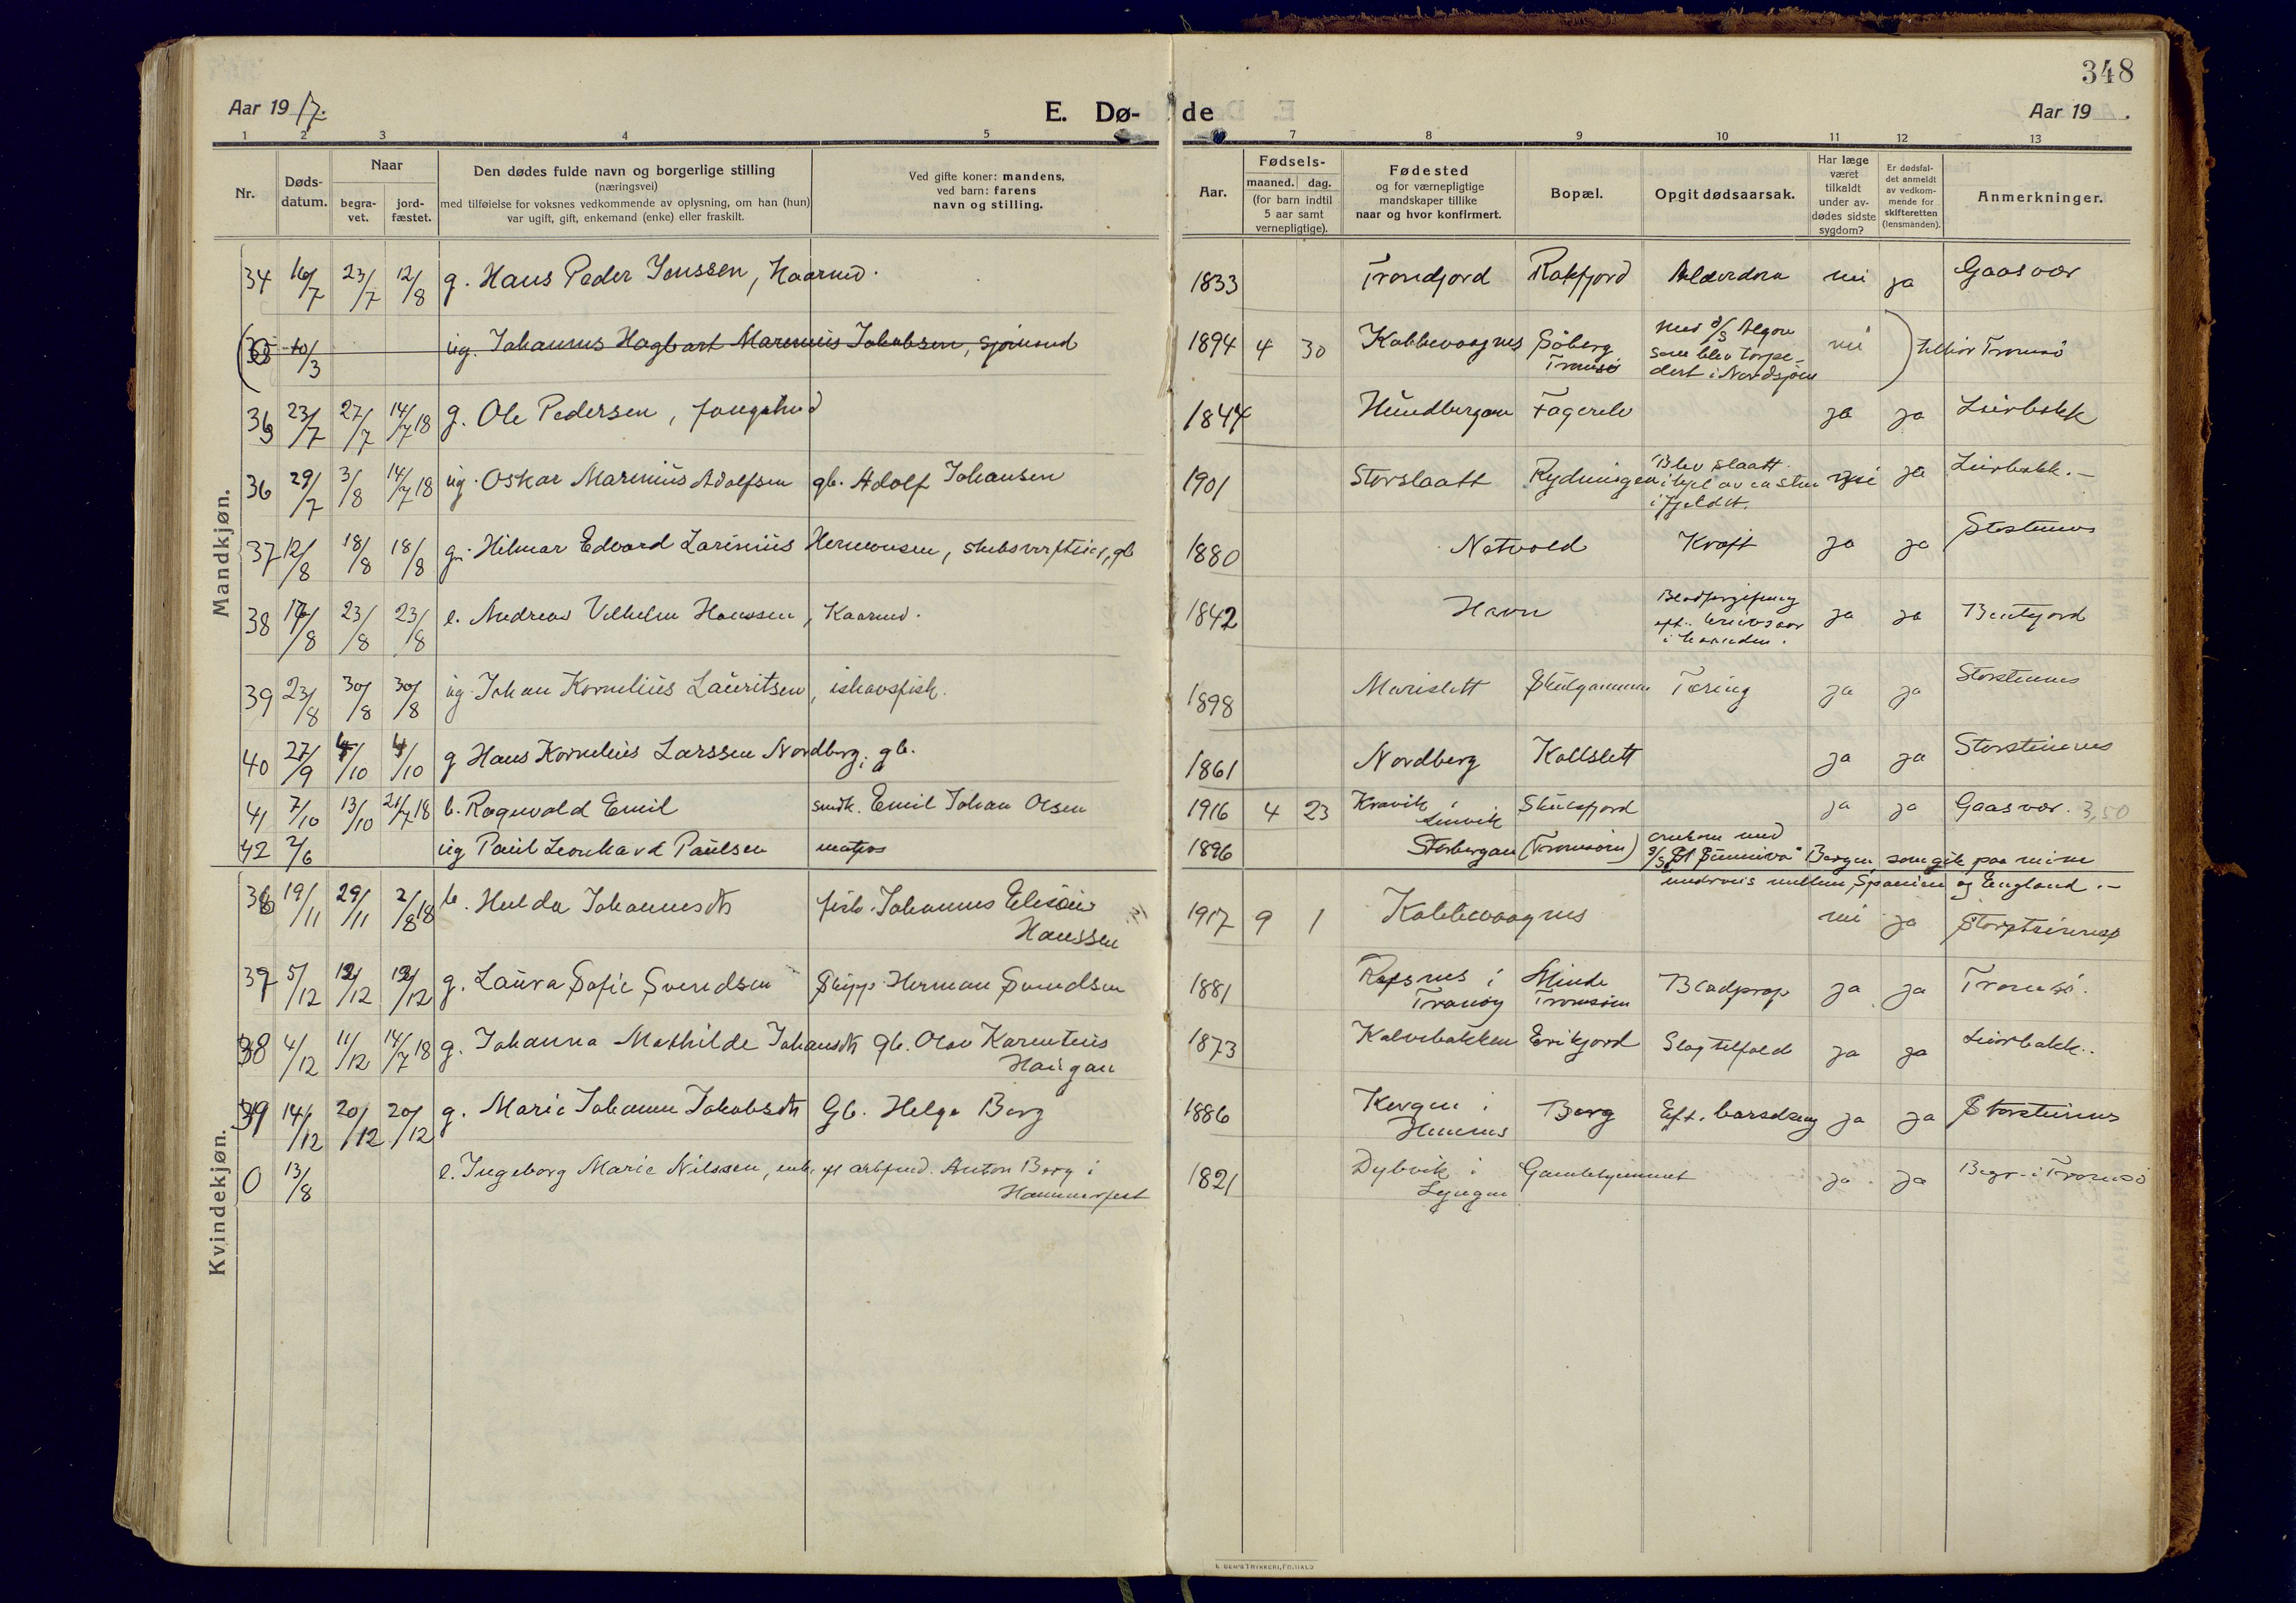 348
Aar 19 17.
E. Dø-
de
Aar 19 .
1 2 3 4 5
7 8 9 10 11 12 13
Nr.
Døds-
datum.
Naar
begra-
vet.
jord-
fæstet.
Den dødes fulde navn og borgerlige stilling
(næringsvei)
med tilføielse for voksnes vedkommende av oplysning, om han (hun)
var ugift, gift, enkemand (enke) eller fraskilt.
Ved gifte koner: mandens,
ved barn: farens
navn og stilling.
Aar.
Fødsels-
maaned. dag.
(for barn indtil
5 aar samt
vernepligtige).
Fødested
og for værnepligtige
mandskaper tillike
naar og hvor konfirmert.
Bopæl.
Opgit dødsaarsak.
Har læge
været
tilkaldt
under av-
dødes sidste
sygdom?
Er dødsfal-
det anmeldt
av vedkom-
mende for
skifteretten
(lensmanden).
Anmerkninger.
Mandkjøn.
34 16/7 23/7 12/8 g. Hans Peder Jenssen, Kaarmd. 1833 Trondjord Rakfjord Alderdom nei ja Gaasvær
35 10/3 ug. Johannes Hagbart Marenius Jakobsen, sjømand 1894 4 30 Kobbevaagnes Søberg Tromsø
med d/s Algon
som blev torpe-
dert i Nordsjøen
nei tilhør Tromsø
36 23/7 27/7 14/7 18 g. Ole Pedersen, 1844 Hundbergan Fagerelv ja ja Leirbakk
36 29/7 3/8 14/7 18 ug. Oskar Marenius Adolfsen gb. Adolf Johansen 1901 Storslaatt Rydningen
Blev slaatt
ihjel av en sten
i fjeldet.
nei ja Leirbakk.-
37 12/8 18/8 18/8 g. Hilmar Edvard Larinius Hermansen, gb 1880 Notvold Kræft ja ja Storstennes
38 17/8 23/8 23/8 e. Andreas Vilhelm Hanssen, Kaarmd. 1842 Havn
Blodforgiftning
eft.
i haanden.
ja ja Bentsjord
39 23/8 30/8 30/8 ug. Johan Kornelius Lauritsen, ishavsfisk. 1898 Marislett Skulgammen Tæring ja ja Storstennes
40 27/9 4/10 4/10 g Hans Kornelius Larssen Nordberg, gb. 1861 Nordberg Kallslett ja ja Storsteinnes
41 7/10 13/10 21/7 18 b. Ragnvald Emil smdk. Emil Johan Olsen 1916 4 23 Kravik i
Lenvik
Skulsfjord ja ja Gaasvær. 3,50
42 2/6 ug Paul Leonhard Paulsen matros 1896 Storbergan (Tromsøen) omkom med
s/s "St Sunniva" Bergen, som gik paa mine
underveis mellem Spanien og England.-
Kvindekjøn.
36 19/11 29/11 2/8 18 b. Hulda Johannesdtr fisk. Johannes Eliseus
Hanssen
1917 9 1 Kobbevaagnes nei ja Storsteinnes
37 5/12 12/12 12/12 g. Laura Sofie Svendsen Skipp. Herman Svendsen 1881 Refsnes i
Tranøy
Minde
Tromsøen
Blodprop ja ja Tromsø.
38 4/12 11/12 14/7 18 g. Johanna Mathilde Johansdtr gb. Olav Karentius
Haugan
1873 Kalvebakken Erikjord Slagtilfælde ja ja Leirbakk..
39 14/12 20/12 20/12 g. Marie Johanne Jakobsdtr Gb. Helge Berg 1886 Kergen i
Berg Eft. barselseng ja ja Storsteinnes
0 13/8 e. Ingeborg Marie Nilssen, enk. eft arbmd. Anton Berg i
Hammerfest
1821 Dybvik i
Lyngen
Gamlehjemmet ja ja Begr. i Tromsø